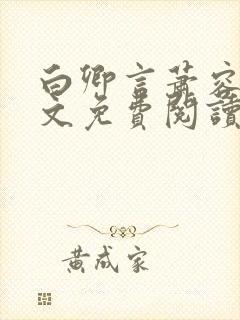 白卿言蕭容
文免費閱讀
黃成家